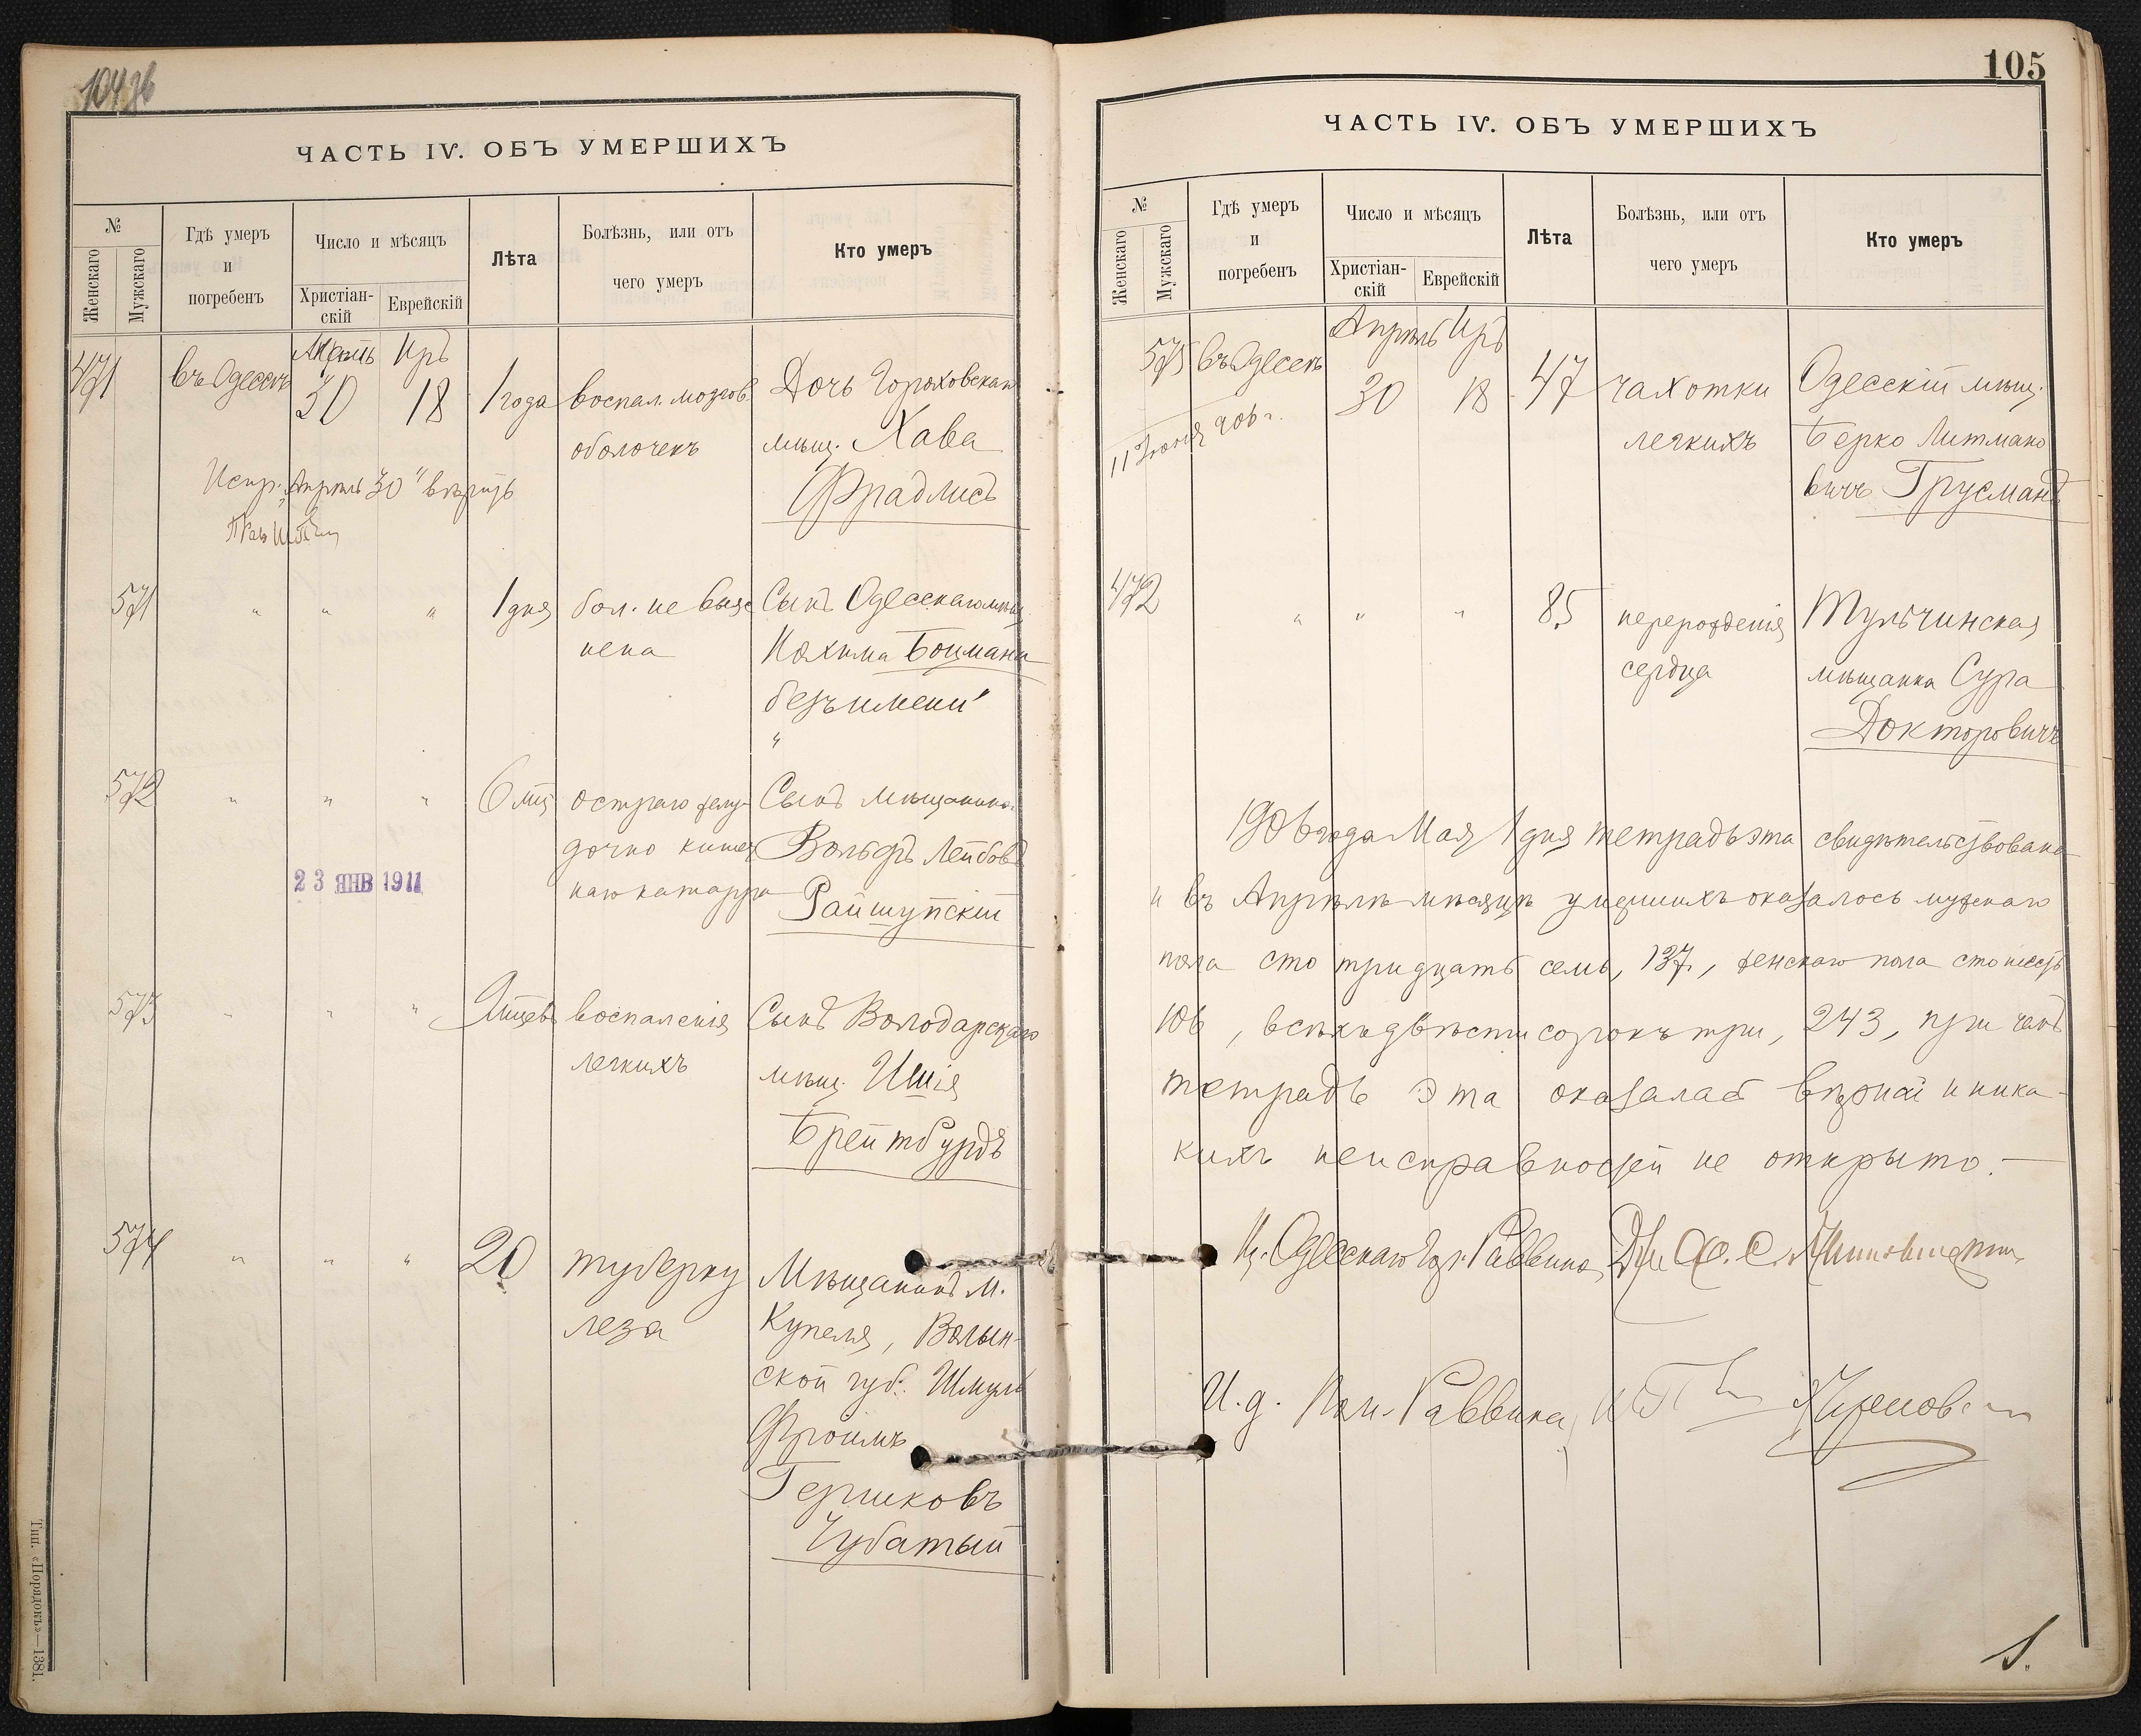 105
ЧАСТЬ IV. ОБЪ УМЕРШИХЪ
№
Женскаго
Мужскаго
Гдѣ умеръ
и
погребенъ
Число и мѣсяцъ
Христіан-
скій
Еврейскій
Лѣта
Болѣзнь, или отъ
чего умеръ
Кто умеръ
471
въ Одессѣ
Иръ
30
18
1 года
воспал. мозгов.
оболочекъ
Дочь Гороховскаго
мѣщ. Хава
Фрадлисъ
Испр. "Апрѣль 30" вѣрить
571
" " "
1 дня
бол. не выяс
нена
Сынъ Одесскаго мѣщ.
Нахима Боцмана
безъ имени
"
572
" " "
6 мц
остраго желу-
дочно кишеч
наго катарра
Сынъ мѣщанина
Вольфъ Лейбовъ
Райшупскій
23 ЯНВ 1911
573
" " "
воспаленія
легкихъ
Сынъ Володарскаго
мѣщ. Ишія
Брейтбурдъ
574
" " "
20
туберку
леза
Мѣщанинъ м.
Купеля, Волын-
ской губ. Шмуль
Фроимъ
Гершковъ
Чубатый
Тип. «Порядокъ»—1381.
ЧАСТЬ IV. ОБЪ УМЕРШИХЪ
№
Женскаго
Мужскаго
Гдѣ умеръ
и
погребенъ
Число и мѣсяцъ
Христіан-
скій
Еврейскій
Лѣта
Болѣзнь, или отъ
чего умеръ
Кто умеръ
575
въ Одессѣ
Апрѣль Иръ
30
18
47
чахотки
легкихъ
Одесскій мѣщ.
Берко Литмано
вичъ Грусманъ
11 Іюня 906 г.
472
" " "
85
перерожденія
сердца
Тульчинская
мѣщанка Сура
Докторовичъ
1906 года Мая 1 дня тетрадь эта свидѣтельствована
и въ Апрѣлѣ мѣсяцѣ умершихъ оказалось мужскаго
пола сто тридцать семь, 137, женскаго пола сто шесть
106, всѣхъ двѣсти сорокъ три, 243, при чемъ
тетрадь эта оказалась вѣрной и ника-
кихъ неисправностей не открыто.—
Одесскаго Гор. Раввина
И. д. Пом. Раввина